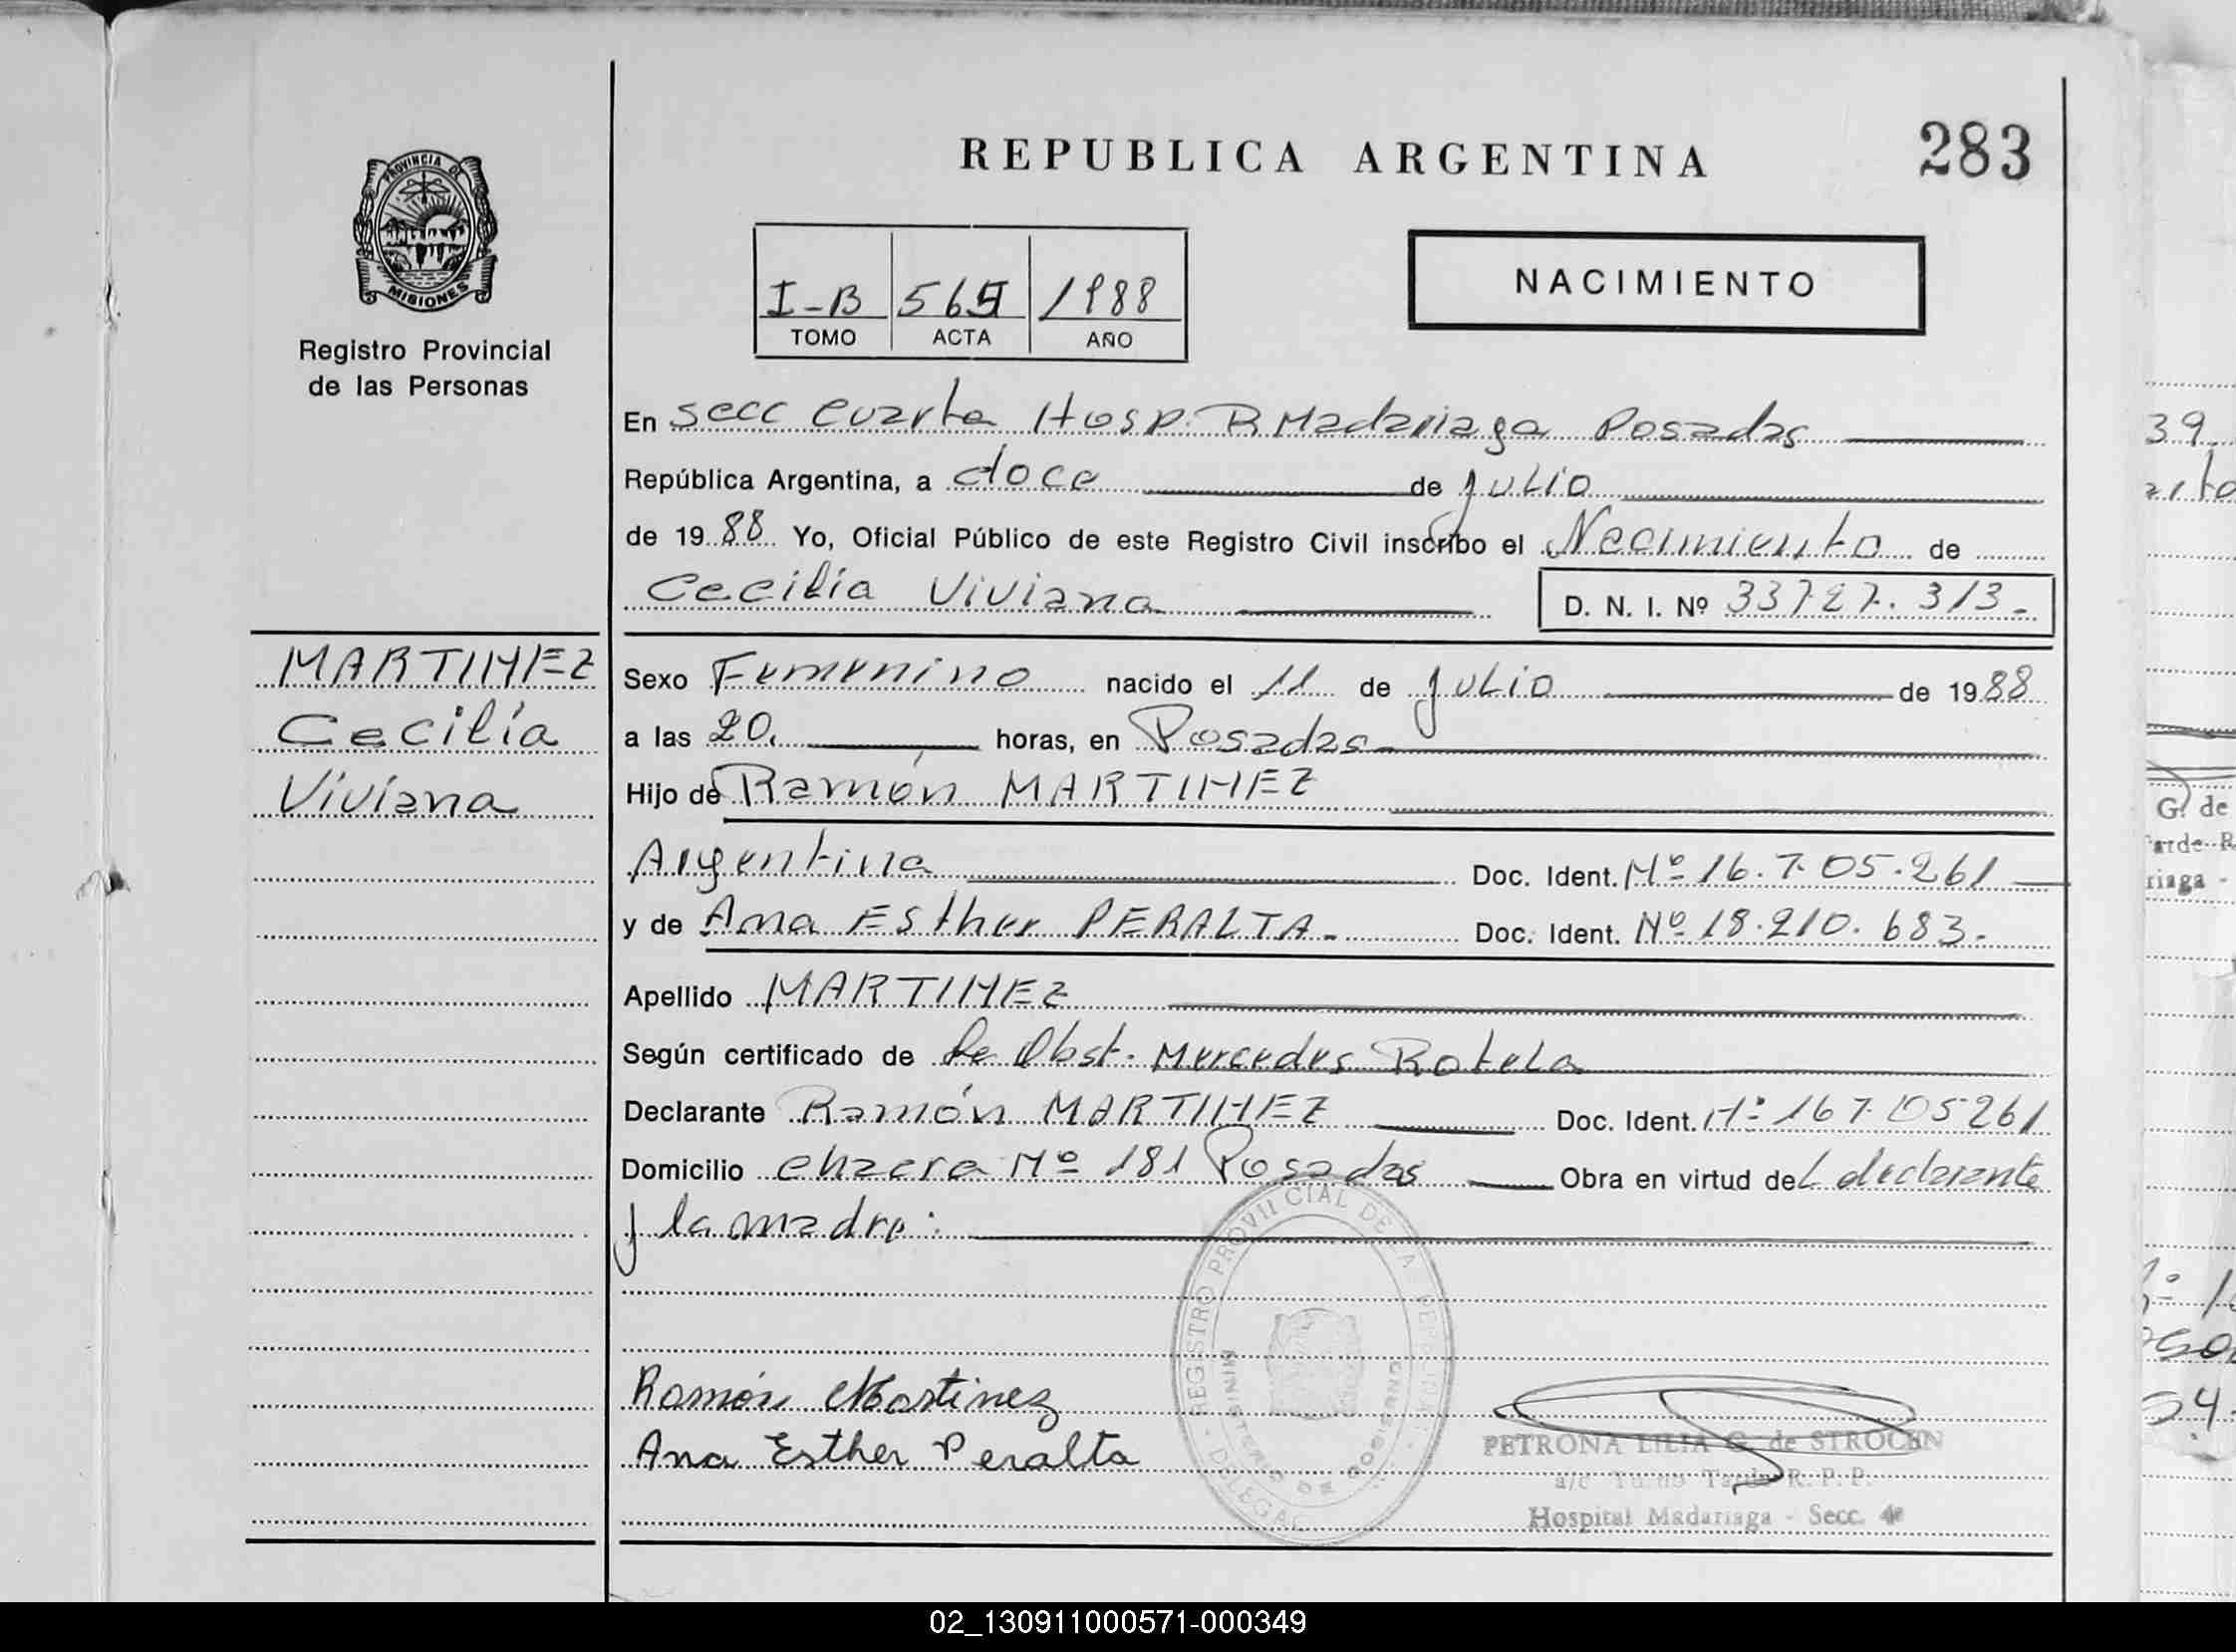 REPUBLICA ARGENTINA
283
PROVINCIA DE
MISIONES
Registro Provincial
de las Personas
I-B 565 1988
TOMO ACTA AÑO
NACIMIENTO
En secc cuarta Hosp. R Madariaga Posadas
República Argentina, a doce de julio
de 1988 Yo, Oficial Público de este Registro Civil inscribo el Nacimiento de
Cecilia Viviana D. N. I. Nº 33727.313-
MARTINEZ
Cecilia
Viviana
Sexo Femenino nacido el 11 de julio de 1988
a las 20. horas, en Posadas-
Hijo de Ramón MARTINEZ
Argentina Doc. Ident. Nº 16.705.261
y de Ana Esther PERALTA- Doc. Ident. Nº 18.210.683-
Apellido MARTINEZ
Según certificado de la Obst. Mercedes Rotela
Declarante Ramón MARTINEZ Doc. Ident. Nº 16705261
Domicilio Nº 181 Posadas Obra en virtud del declarante
y la madre:
REGISTRO PROVINCIAL DE LA
MINISTERIO DE GOBIERNO
Ramón Martinez
Ana Esther Peralta
PETRONA LILIA G. de STROCEN
a/c Turno Tarde R.P.P.
Hospital Madariaga - Secc. 4ª
39
G. de
arde R
riaga -
02_130911000571-000349